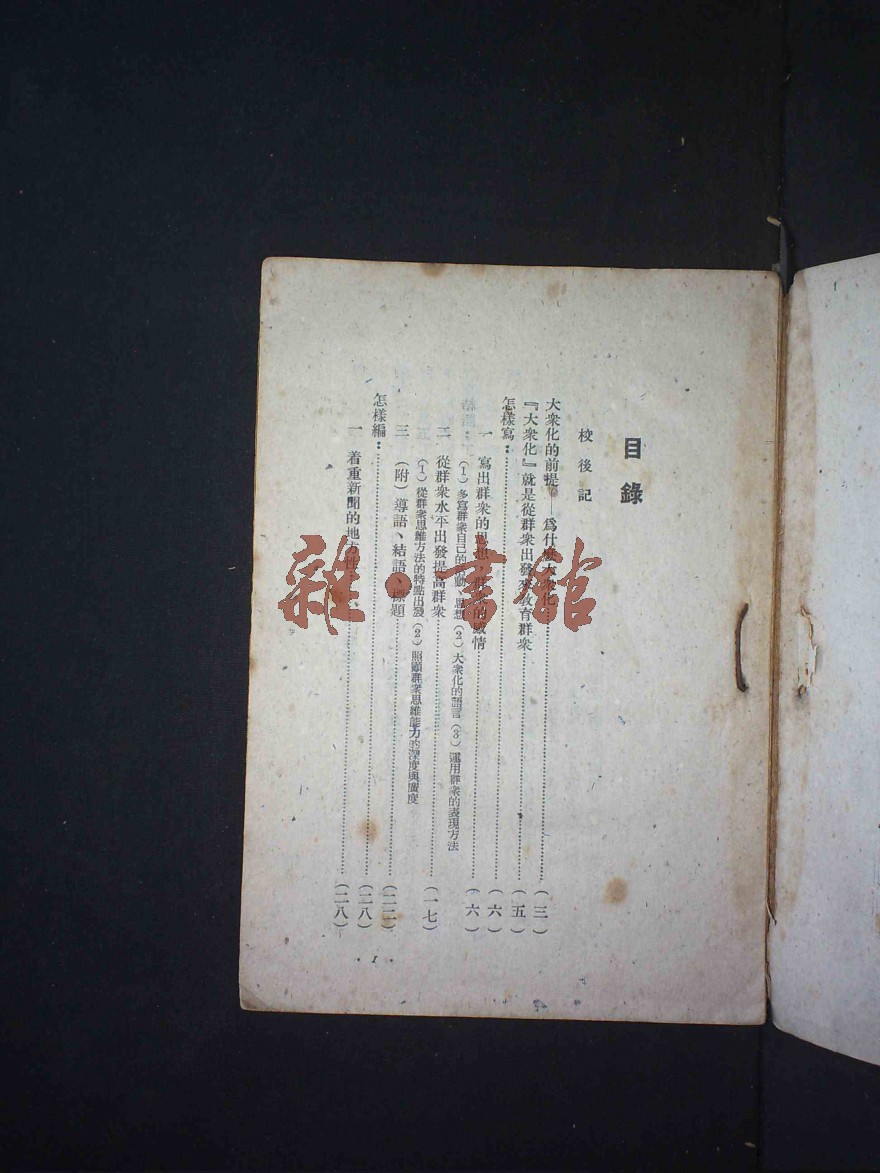 目錄
校後記
大衆化的前提——爲什麼大衆化………(三)
『大衆化』就是從群衆出發來教育群衆………(五)
怎樣寫：………(六)
一 寫出群衆的思想、群衆的感情………(六)
(1)多寫群衆自己的活動、思想(2)大衆化的語言(3)運用群衆的表現方法
二 從群衆水平出發提高群衆………(一七)
(1)從群衆思維方法的特點出發(2)照顧群衆思維能力的深度與廣度
三 (附)導語、結語、標題………(二二)
怎樣編：………(二八)
一 着重新聞的地方性………(二八)
· 1 ·
雜·書館